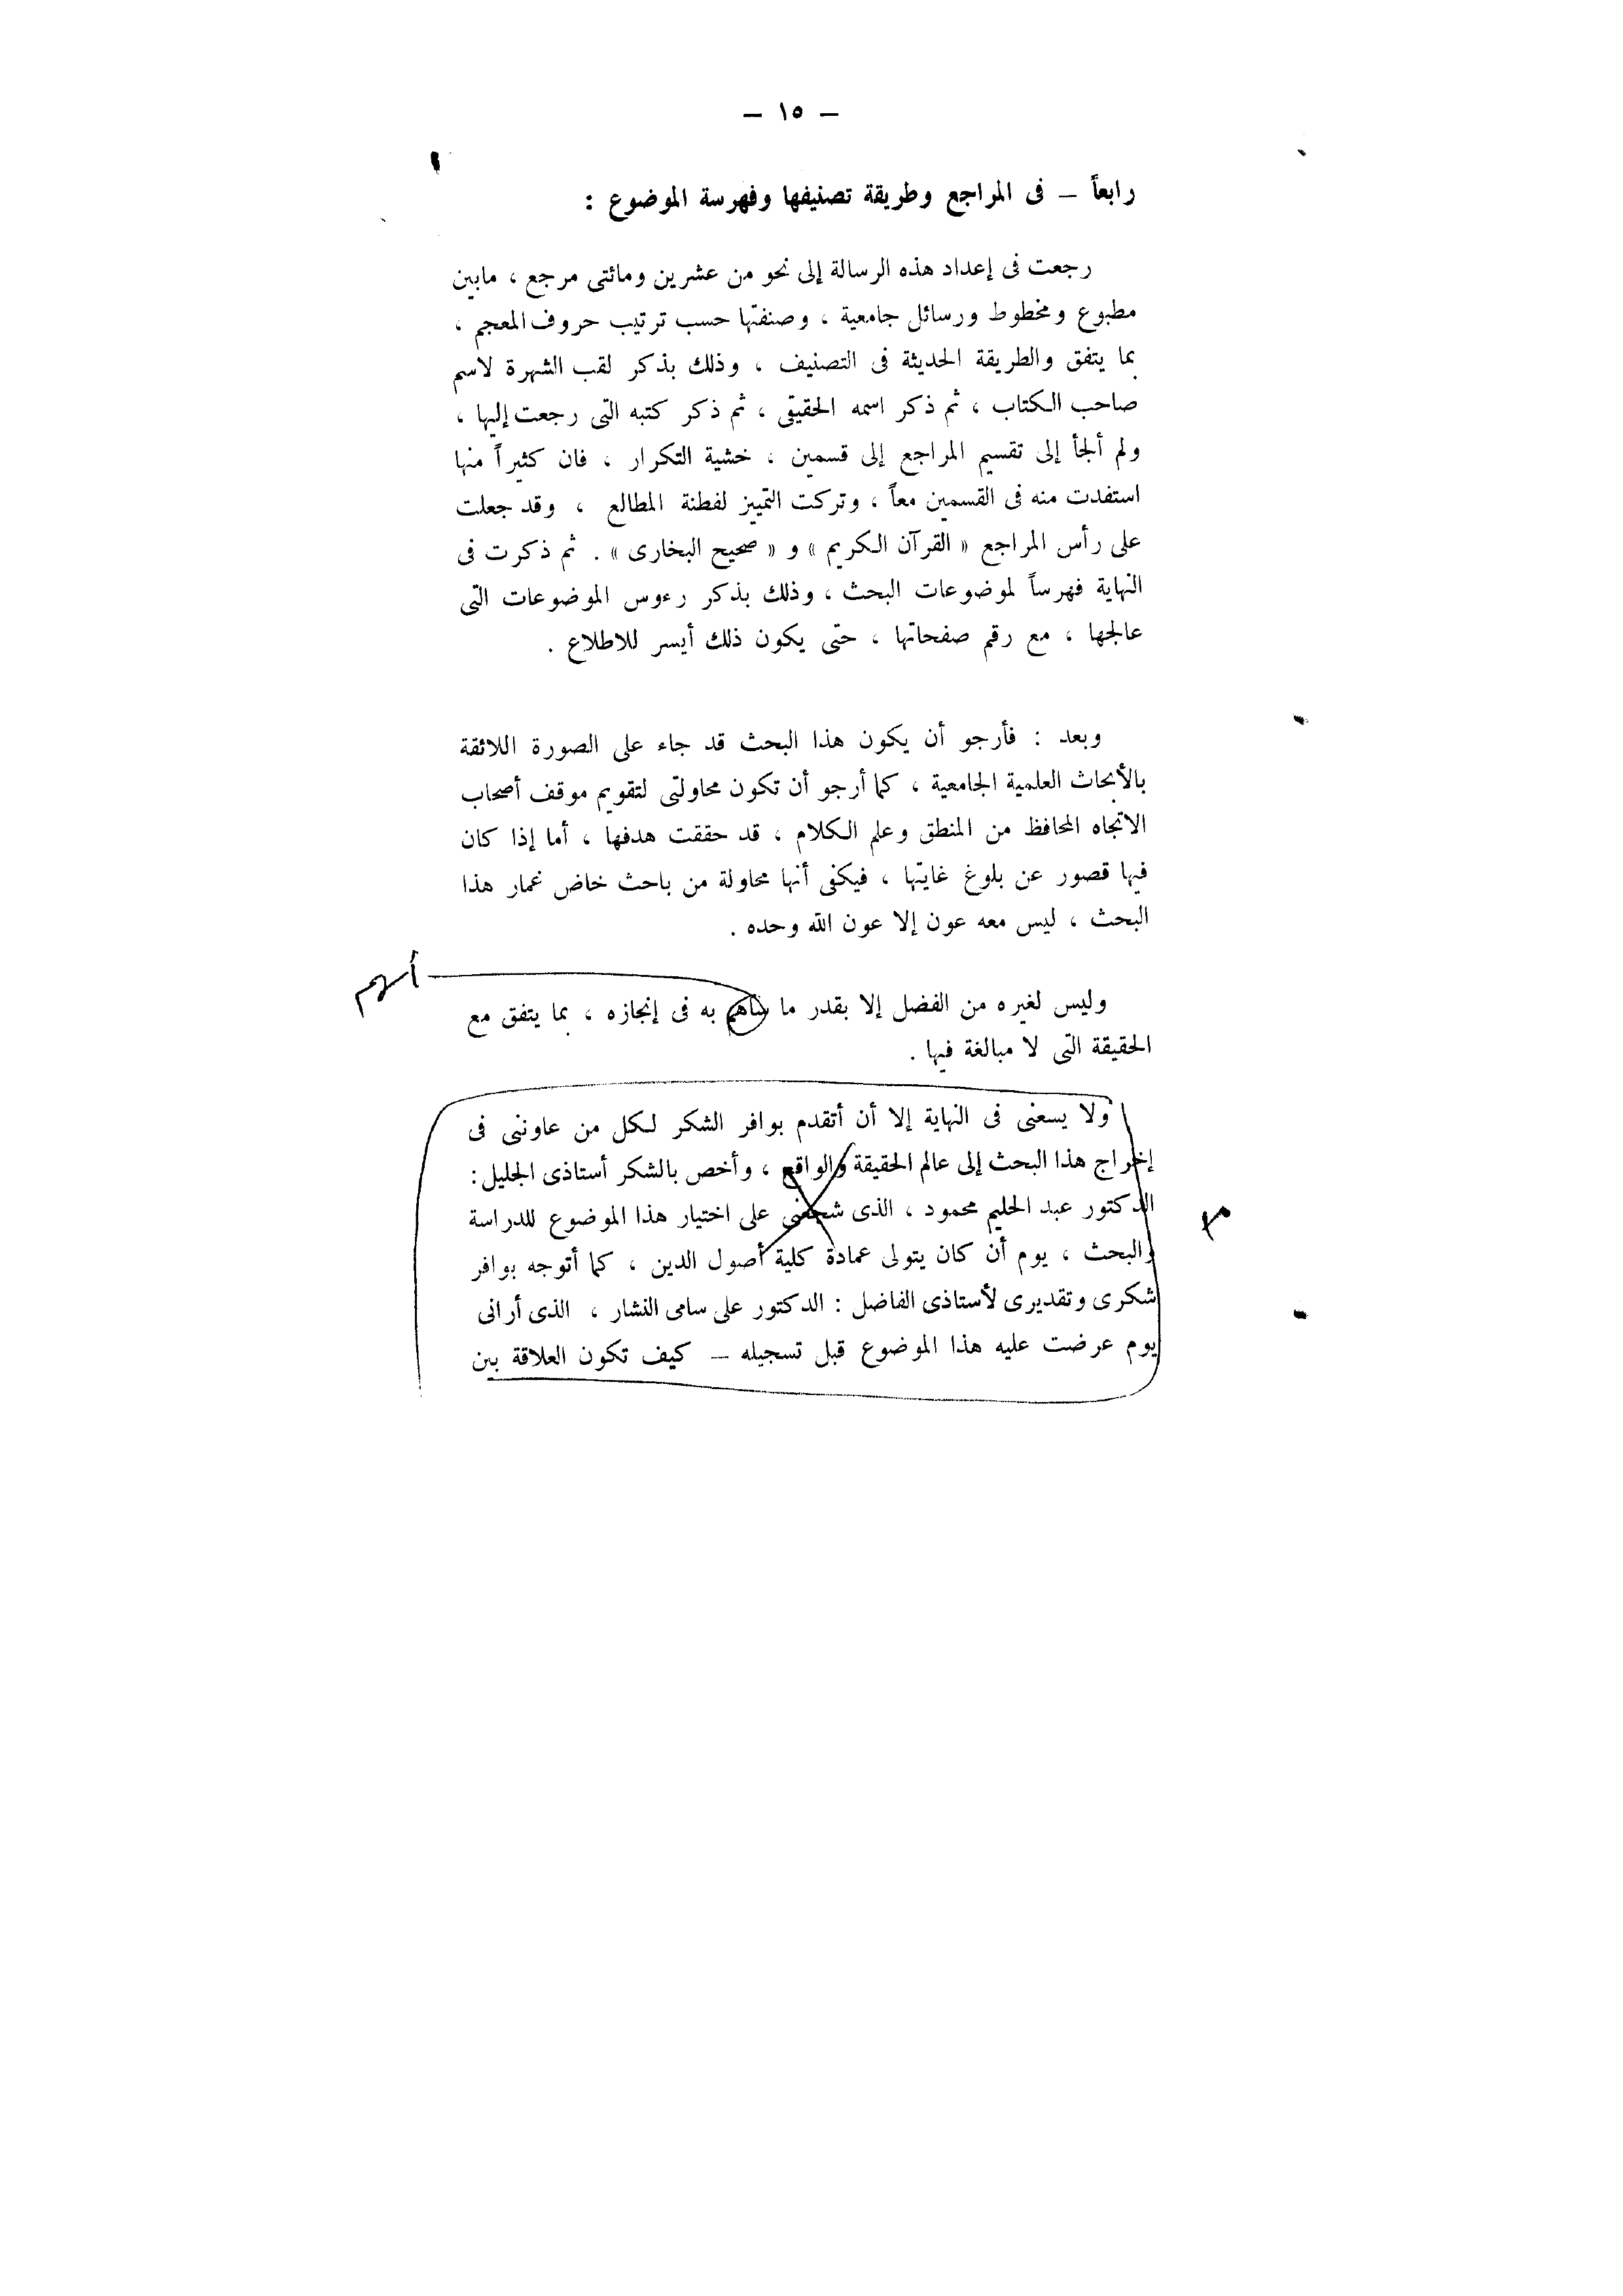 — ١٥ —
رابعاً — فى المراجع وطريقة تصنيفها وفهرسة الموضوع :
رجعت فى إعداد هذه الرسالة إلى نحو من عشرين ومائتى مرجع ، مابين
مطبوع ومخطوط ورسائل جامعية ، وصنفتها حسب ترتيب حروف المعجم ،
بما يتفق والطريقة الحديثة فى التصنيف ، وذلك بذكر لقب الشهرة لاسم
صاحب الكتاب ، ثم ذكر اسمه الحقيقى ، ثم ذكر كتبه التى رجعت إليها ،
ولم ألجأ إلى تقسيم المراجع إلى قسمين ، خشية التكرار ، فان كثيراً منها
استفدت منه فى القسمين معاً ، وتركت التمييز لفطنة المطالع ، وقد جعلت
على رأس المراجع « القرآن الكريم » و « صحيح البخارى » . ثم ذكرت فى
النهاية فهرساً لموضوعات البحث ، وذلك بذكر رءوس الموضوعات التى
عالجها ، مع رقم صفحاتها ، حتى يكون ذلك أيسر للاطلاع .
وبعد : فأرجو أن يكون هذا البحث قد جاء على الصورة اللائقة
بالأبحاث العلمية الجامعية ، كما أرجو أن تكون محاولتى لتقويم موقف أصحاب
الاتجاه المحافظ من المنطق وعلم الكلام ، قد حققت هدفها ، أما إذا كان
فيها قصور عن بلوغ غايتها ، فيكفى أنها محاولة من باحث خاض غمار هذا
البحث ، ليس معه عون إلا عون الله وحده .
أسهم
وليس لغيره من الفضل إلا بقدر ما ساهم به فى إنجازه ، بما يتفق مع
الحقيقة التى لا مبالغة فيها .
ولا يسعنى فى النهاية إلا أن أتقدم بوافر الشكر لكل من عاوننى فى
إخراج هذا البحث إلى عالم الحقيقة والواقع ، وأخص بالشكر أستاذى الجليل :
الدكتور عبد الحليم محمود ، الذى شجعنى على اختيار هذا الموضوع للدراسة
والبحث ، يوم أن كان يتولى عمادة كلية أصول الدين ، كما أتوجه بوافر
شكرى وتقديرى لأستاذى الفاضل : الدكتور على سامى النشار ، الذى أرانى
يوم عرضت عليه هذا الموضوع قبل تسجيله — كيف تكون العلاقة بين